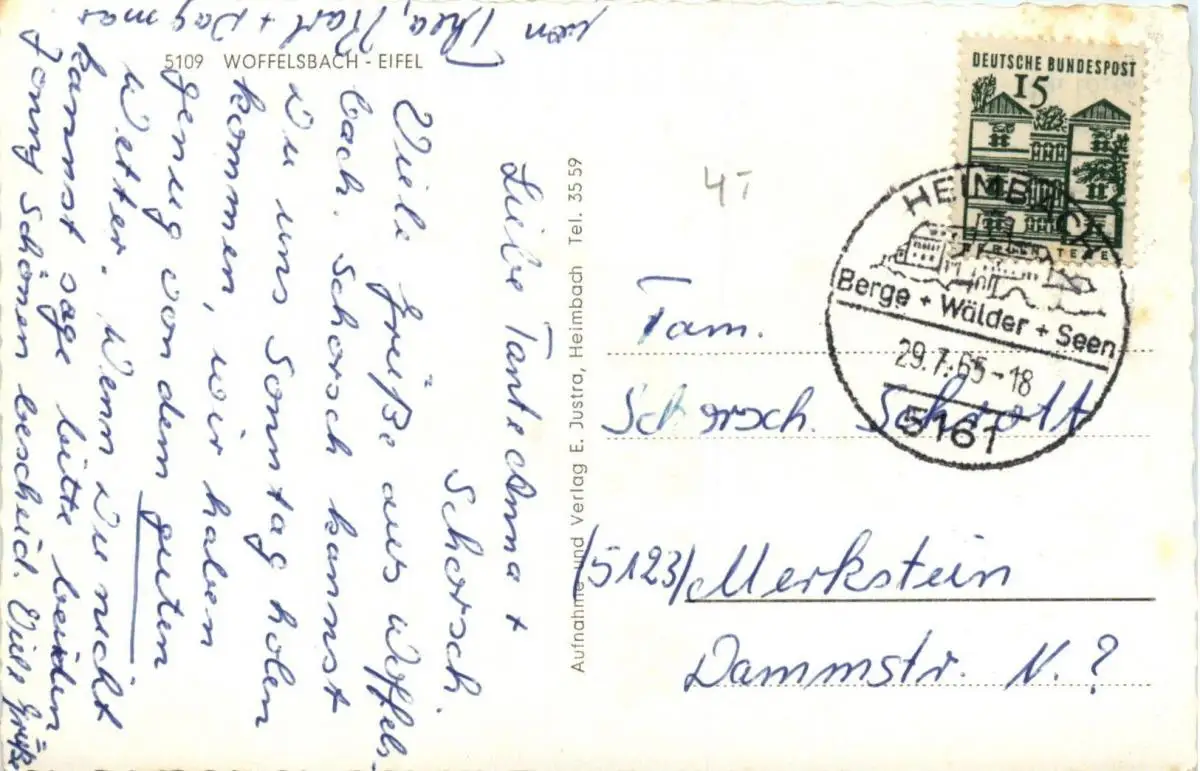 5109 WOFFELSBACH - EIFEL
Liebe Tante Anna +
Schorsch.
Viele Grüße aus Woffels-
bach. Schorsch kannst
Du uns Sonntag holen
kommen, wir haben
genug von dem guten
Wetter. Wenn Du nicht
kannst sage bitte beiden
Jonny Schönen bescheid. Viele Grüße
von Thea, Karl + Dagmar
Aufnahme und Verlag E. Justra, Heimbach Tel. 35 59
DEUTSCHE BUNDESPOST
15
HEIMBACH
Berge + Wälder + Seen
29.7.65-18
5161
Fam.
Schorsch. Schrott
(5123) Merkstein
Dammstr. N. ?